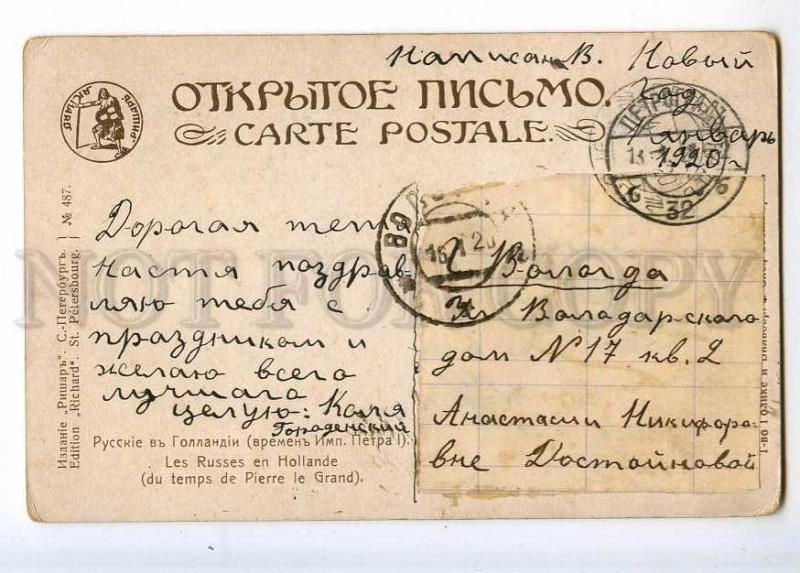 Написан. В. Новый
Год
1 январь
1920 г
ОТКРЫТОЕ ПИСЬМО.
CARTE POSTALE.
РИШАРЪ
RICHARD
ПЕТРОГРАД
13
32
ВО
16 1 20
Дорогая тетя
Настя поздрав-
ляю тебя с
праздником и
желаю всего
лучшаго
целую: Коля
Городенский
г. Вологда
Ул Володарского
дом N 17 кв. 2
Анастасии Никифоро-
вне Достойновой
Русскіе въ Голландіи (временъ Имп. Петра I).
Les Russes en Hollande
(du temps de Pierre le Grand).
Изданіе „Ришаръ“. С.-Петербургъ.
Edition „Richard“. St. Pétersbourg.
№ 487.
Т-во Голике и Вильборг
NOT FOR COPY